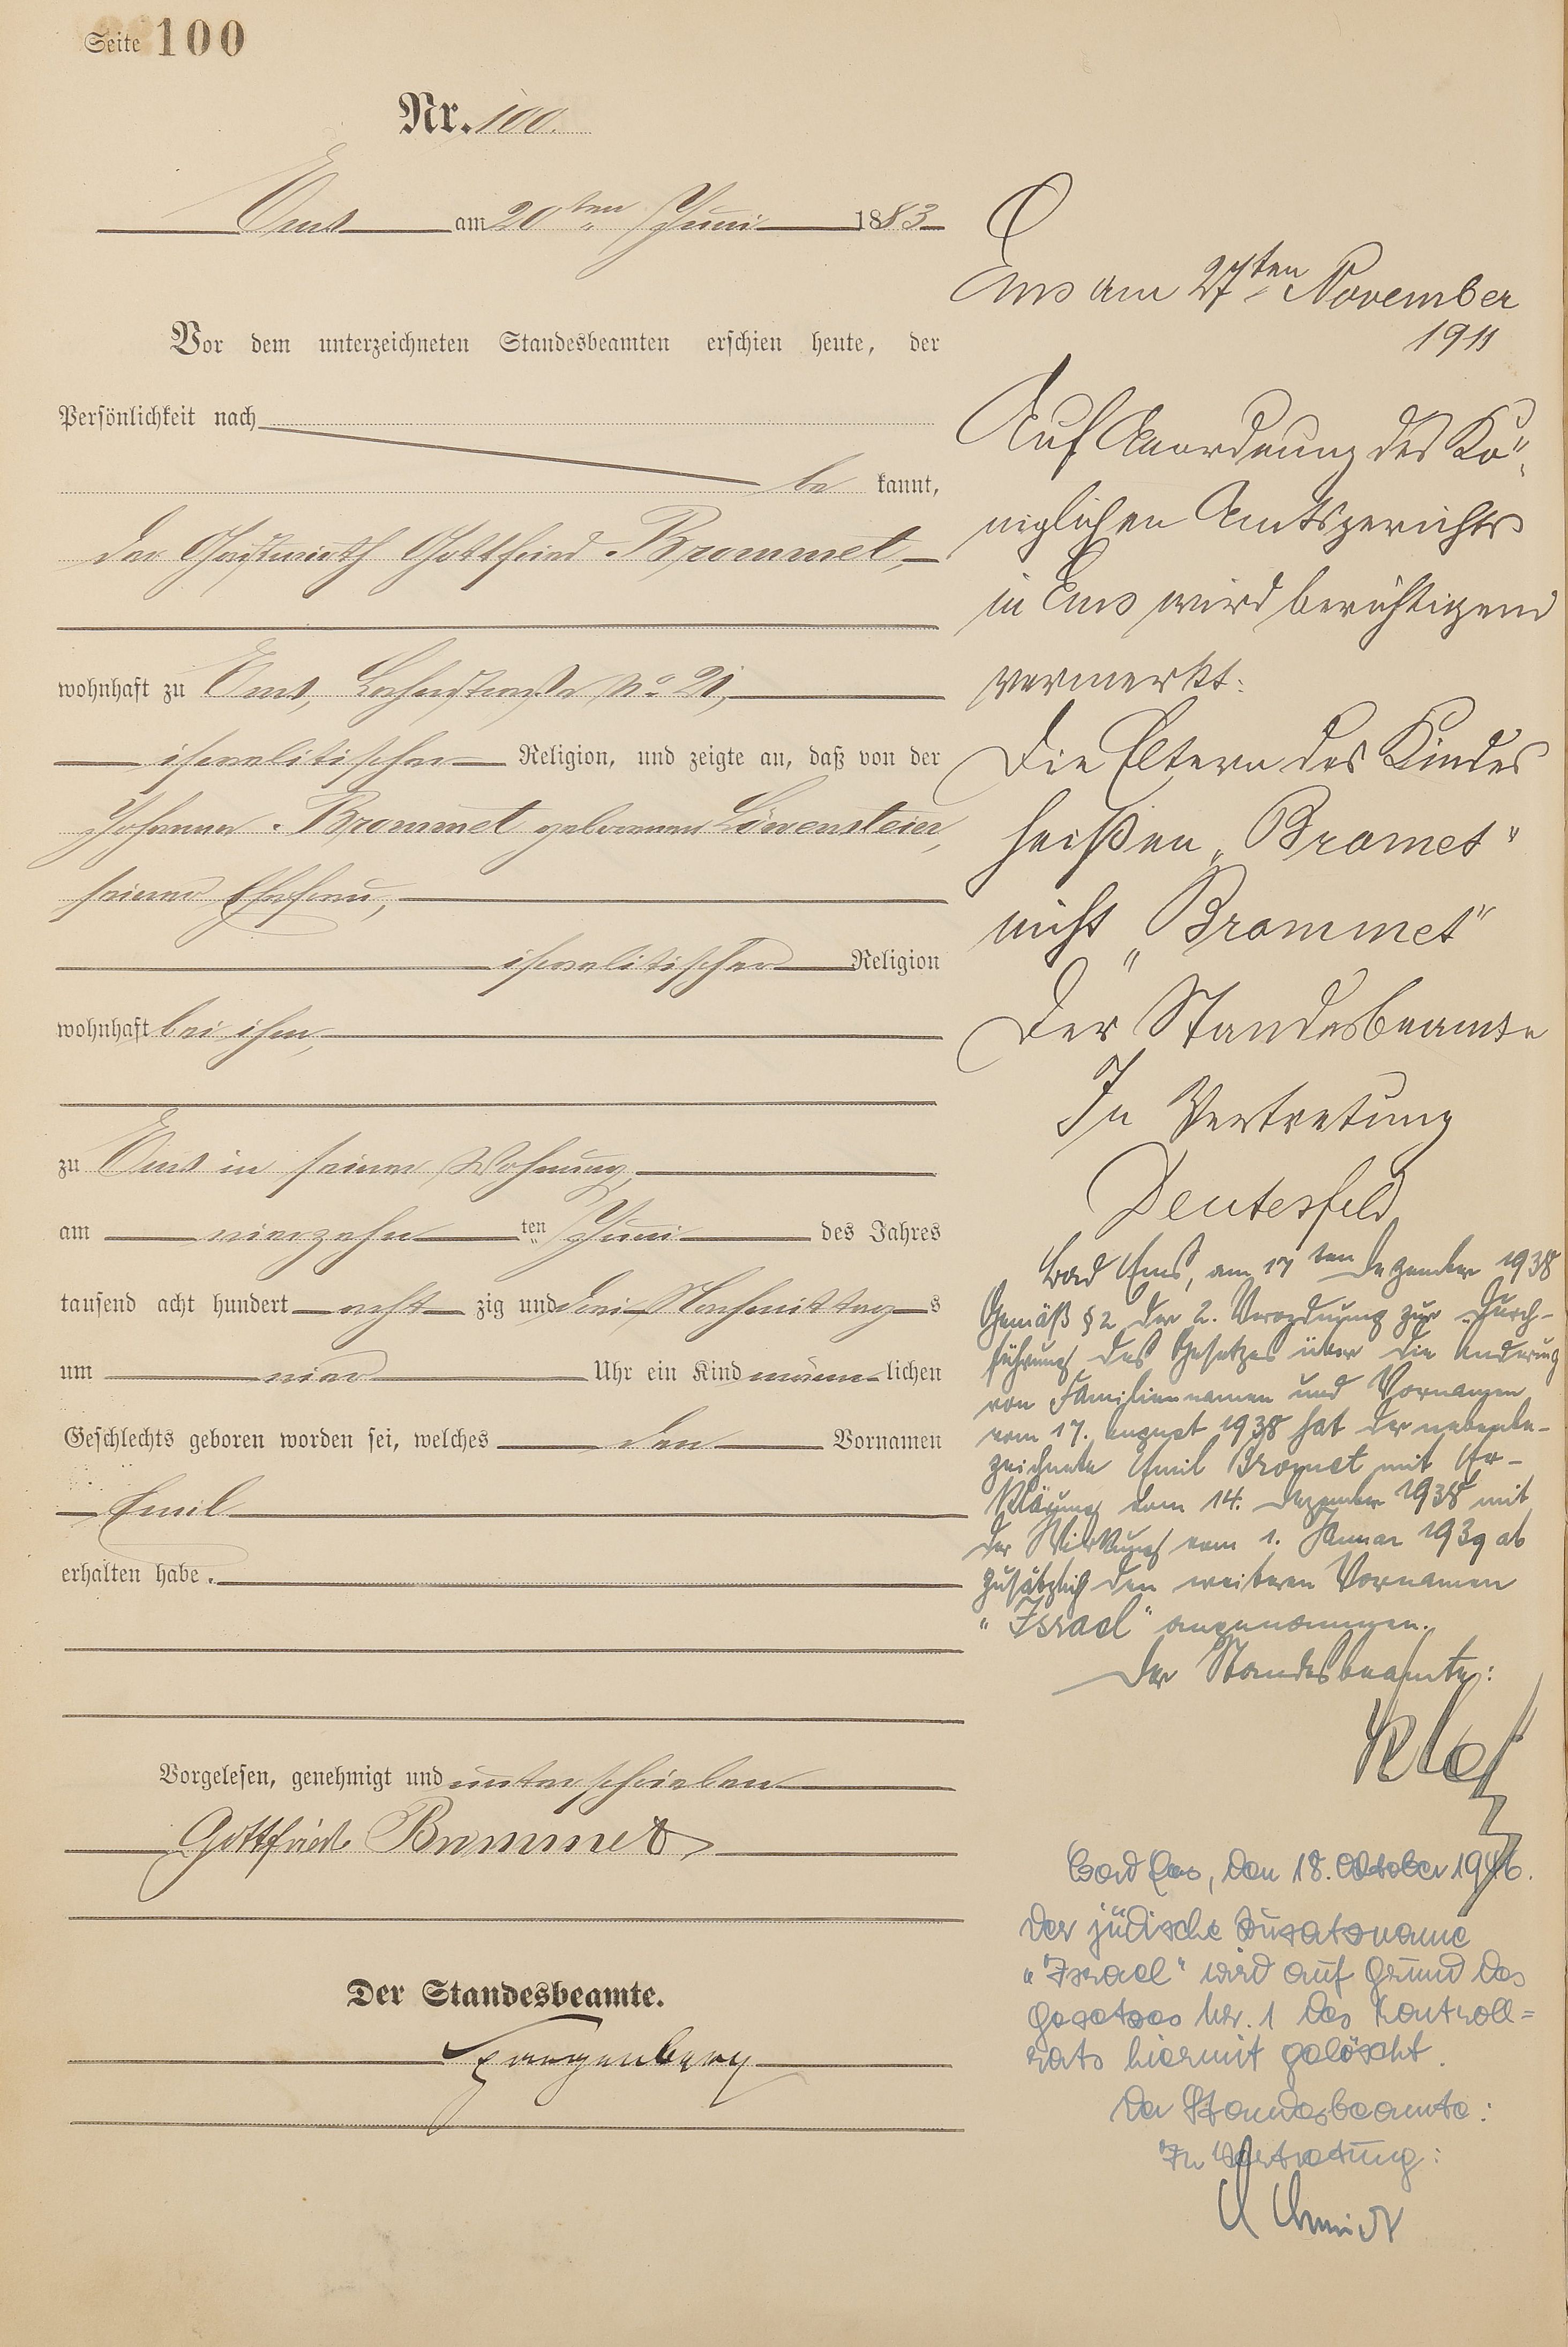 Seite 100
Nr. 100.
Ems am 20ten Juni 1883
Vor dem unterzeichneten Standesbeamten erschien heute, der
Persönlichkeit nach
be kannt,
der Gastwirth Gottfried Brommet,
wohnhaft zu Ems, No 21,
israelitischer Religion, und zeigte an, daß von der
Johanna Brommet geborenen Löwenstein,
seiner Ehefrau,
israelitischer Religion
wohnhaft bei ihm,
zu Ems in seiner Wohnung,
am vierzehn ten Juni des Jahres
tausend acht hundert acht zig und drei Nachmittags
um vier Uhr ein Kind männlichen
Geschlechts geboren worden sei, welches den Vornamen
Emil
erhalten habe.
Vorgelesen, genehmigt und unterschrieben
Gottfried Brommet
Der Standesbeamte.
Ems am 27ten November
1911
Auf Anordnung des Kö-
niglichen Amtsgerichts
in Ems wird berichtigend
vermerkt:
Die Eltern des Kindes
heißen „Bromet"
nicht „Brommet"
Der Standesbeamte
In Vertretung
Deutesfeld
Bad Ems, am 17ten Dezember 1938
Gemäß § 2 der 2. Verordnung zur Durch-
führung des Gesetzes über die Änderung
von Familiennamen und Vornamen
vom 17. August 1938 hat der nebenbe-
zeichnete Emil Bromet mit Er-
klärung vom 14. Dezember 1938 mit
der Wirkung vom 1. Januar 1939 ab
zusätzlich den weiteren Vornamen
"Israel" angenommen.
Der Standesbeamte:
Bad Ems, den 18. Oktober 1946.
Der jüdische Zusatzname
"Israel" wird auf Grund des
Gesetzes Nr. 1 des Kontroll=
rats hiermit gelöscht.
Der Standesbeamte:
In Vertretung:
Schmidt